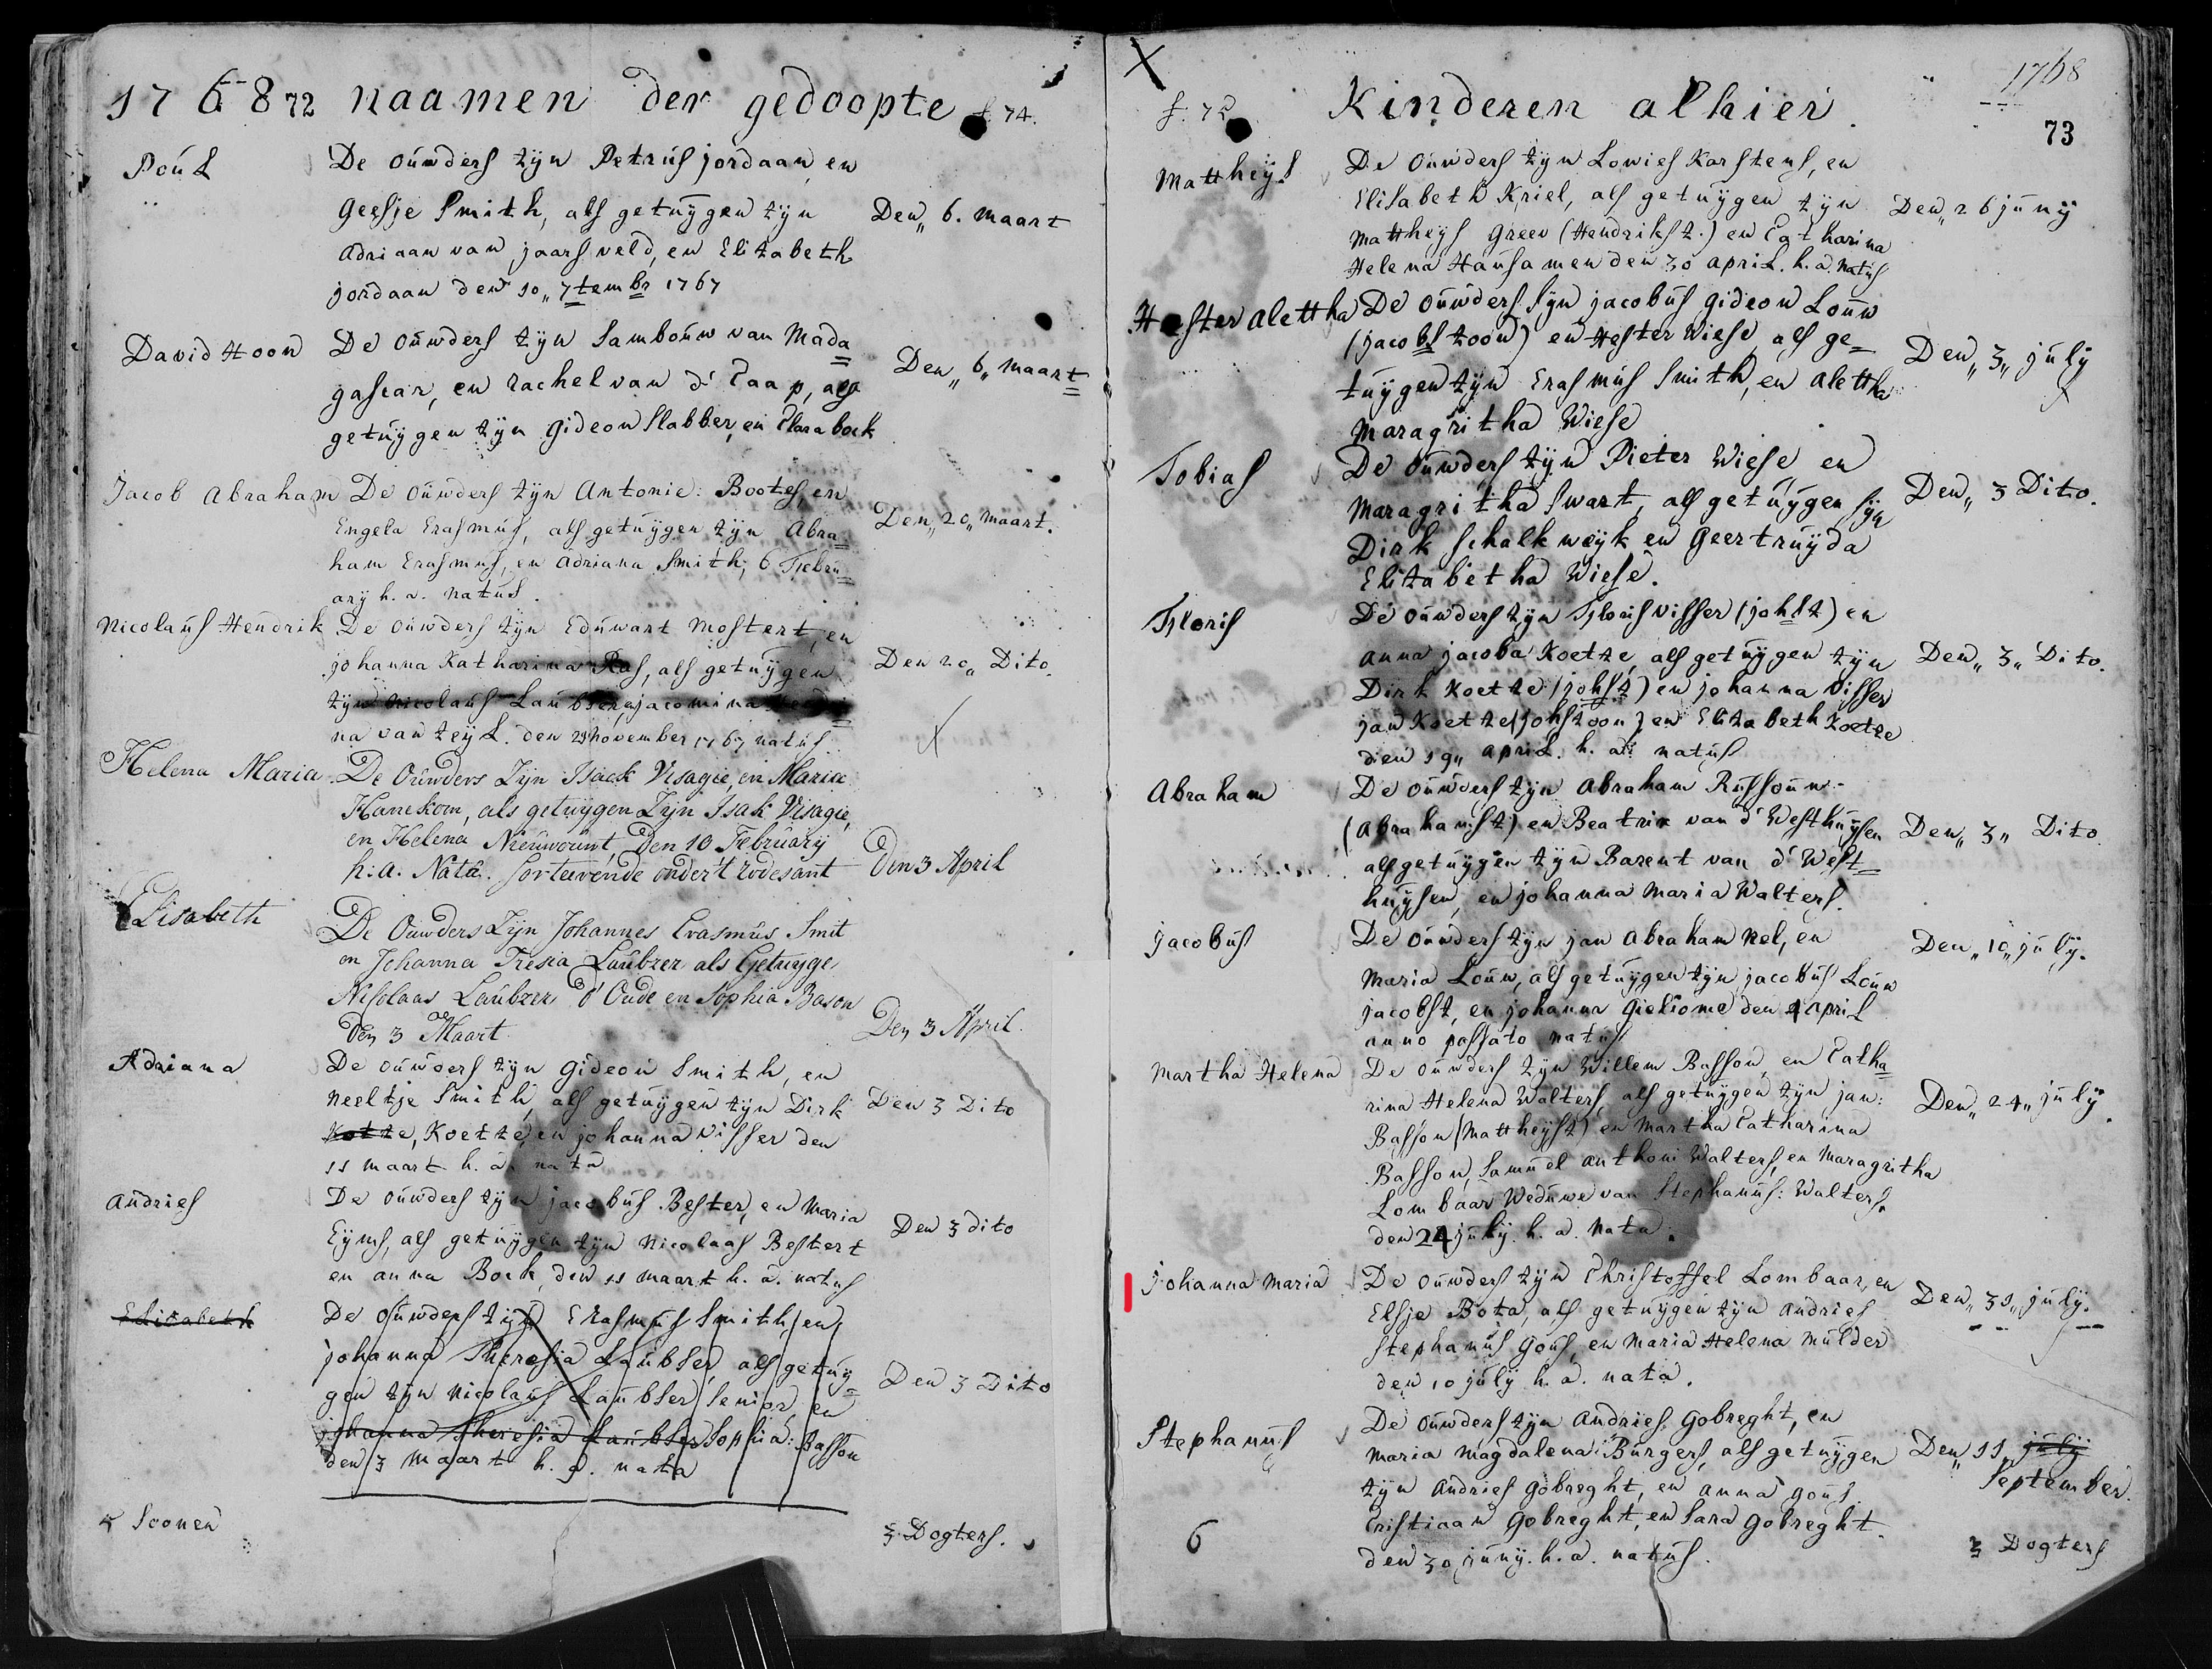 1768 72 naamen der gedoopte f. 74.
Poul
De ouwders zyn Petrus jordaan, en
Geesje Smith, als getuygen zyn
Adriaan van jaarsveld, en Elizabeth
jordaan den 10„ 7tembr 1767
Den„ 6. maart
David Hoon
De ouwders zyn Sambouw van Mada=
gascar, en Rachel van d' Caap, als
getuygen zyn Gideon Slabber, en Clara bock
Den„ 6„ maart
Jacob Abraham
De ouwders zyn Antonie: Bootes, en
Engela Erasmus, als getuygen zyn Abra=
ham Erasmus, en Adriana Smith, 6 Febru=
ary h. a. natus.
Den„ 20„ maart.
Nicolaus Hendrik
De ouwders zyn Eduwart Mostert, en
johanna Katharina Ras, als getuygen
zyn Nicolaus Laubser, jacomina
na van zeyl. den 29 november 1767 natus
Den 20„ Dito.
Helena Maria
De Ouwders Zyn Isaek Visagie, en Maria
Hanekom, als getuygen Zyn Isak Visagie,
en Helena Nieuwount, Den 10 February
h: a. Nata. sorteerende onder 't rodesant
Den 3 April
Elisabeth
De Ouwders Zyn Johannes Erasmus Smit
en Johanna Tresia Laubzer als Getuyge
Nicolaas Laubzer d' Oude en Sophia Bason
den 3 Maart
Den 3 April
Adriana
De ouwders zyn Gideon Smith, en
Neeltje Smith, als getuygen zyn Dirk
Kotze, Koetze, en johanna visser den
11 maart h. a. nata
Den 3 Dito
Andries
De ouwders zyn jacobus Bester, en Maria
Eyms, als getuygen zyn Nicolaas Bestert
en anna Bock, den 11 maart h. a. natus
Den 3 dito
Elizabeth
De ouwders zyn Erasmus Smith, en
johanna Theresia Laubser, als getuy=
gen zyn Nicolaus Laubser senior en
johanna Theresia Laubser Sophia: Basson
den 3 maart h. a. nata
Den 3 Dito
4 Soonen
3 Dogters.
X
1768
f. 72 Kinderen alhier.
73
Mattheys
De ouwders zyn Lowies Karstens, en
Elisabeth Kriel, als getuygen zyn
Mattheys Greev (Hendriksz.) en Catharina
Helena Hausamen den 30 April. h. a. natus
Den„ 26 juny
Hester alettha
De ouwders syn jacobus gideon Louw
(jacobs zoon) en Hester Wiese, als ge=
tuygen zyn Erasmus Smith, en alettha
Maragritha Wiese
Den„ 3„ july
Tobias
De ouwders zyn Pieter Wiese en
Maragritha Swart, als getuygen syn
Dirk Schalkwyk en Geertruyda
Elizabetha Wiese.
Den„ 3 Dito.
Floris
De ouwders zyn Floris visser (johsz) en
Anna jacoba Koetze, als getuygen zyn
Dirk Koetze (johsz) en johanna Visser
jan Koetze (johszoon) en Elizabeth Koetze
dien 19„ april. h. a. natus
Den„ 3„ Dito.
Abraham
De ouwders zyn Abraham Russouw
(Abrahamsz) en Beatrix van d' Westhuysen
als getuygen zyn Barent van d' West=
huysen, en johanna Maria Walters.
Den„ 3„ Dito
Jacobus
De ouwders zyn jan Abraham Nel, en
Maria Louw, als getuygen zyn jacobus Louw
jacobsz, en johanna Gieliome den 4 april
anno passato natus
Den„ 10„ july.
Martha Helena
De ouwders zyn Willem Basson, en Catha=
rina Helena Walters, als getuygen zyn jan:
Basson (Mattheysz) en Martha Catharina
Basson, Samuel anthoni Walters, en Maragritha
Lombaar Weduwe van Stephanus: Walters.
den 24 july. h. a. nata.
Den„ 24„ july.
Johanna Maria
De ouwders zyn Christoffel Lombaar, en
Elsje Bota, als getuygen zyn Andries
Stephanus Gous, en Maria Helena Mulder
den 10 july h. a. nata.
Den„ 31„ july.
Stephanus
De ouwders zyn Andries Gobreght, en
Maria Magdalena Burgers, als getuygen
zyn Andries Gobreght, en Anna Gous
Cristiaan Gobreght, en Sara Gobreght.
den 30 juny. h. a. natus.
Den„ 11 july
September.
6
3 Dogters